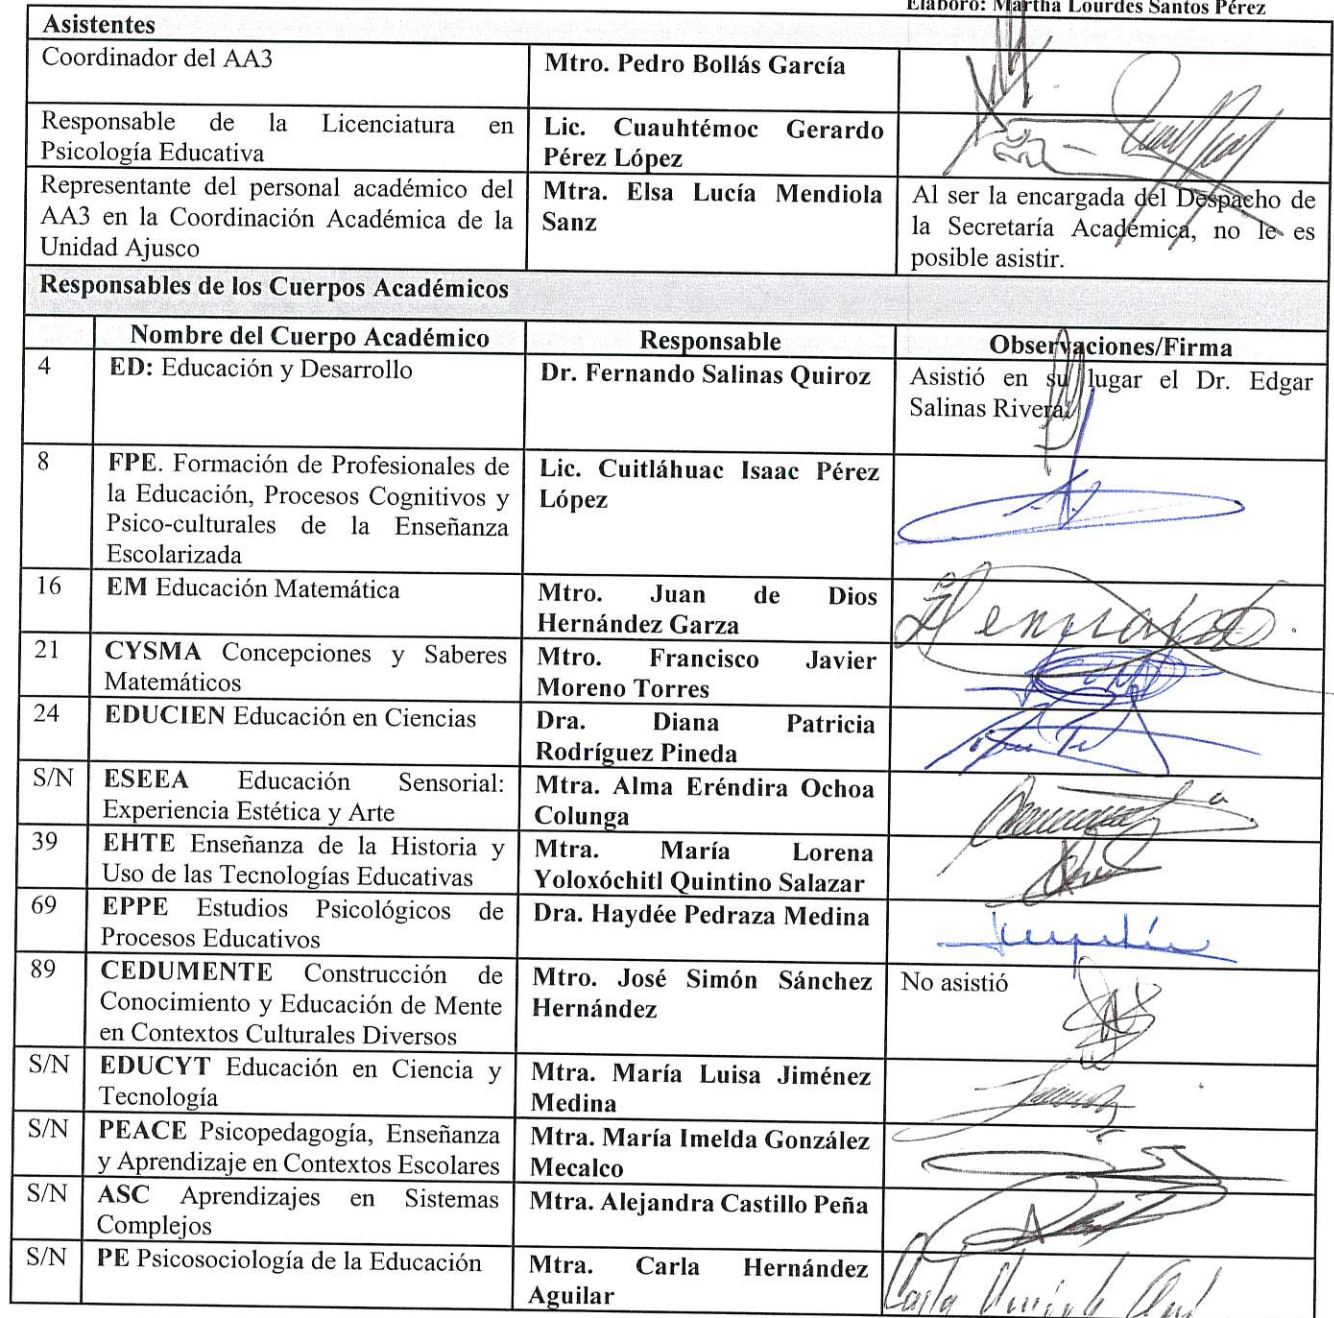 Elaboró: Martha Lourdes Santos Pérez
Asistentes
Coordinador del AA3
Mtro. Pedro Bollás García
Responsable de la Licenciatura en
Psicología Educativa
Lic. Cuauhtémoc Gerardo
Pérez López
Representante del personal académico del
AA3 en la Coordinación Académica de la
Unidad Ajusco
Mtra. Elsa Lucía Mendiola
Sanz
Al ser la encargada del Despacho de
la Secretaría Académica, no le es
posible asistir.
Responsables de los Cuerpos Académicos
Nombre del Cuerpo Académico
Responsable
Observaciones/Firma
4
ED: Educación y Desarrollo
Dr. Fernando Salinas Quiroz
Asistió en su lugar el Dr. Edgar
Salinas Rivera.
8
FPE. Formación de Profesionales de
la Educación, Procesos Cognitivos y
Psico-culturales de la Enseñanza
Escolarizada
Lic. Cuitláhuac Isaac Pérez
López
16
EM Educación Matemática
Mtro. Juan de Dios
Hernández Garza
21
CYSMA Concepciones y Saberes
Matemáticos
Mtro. Francisco Javier
Moreno Torres
24
EDUCIEN Educación en Ciencias
Dra. Diana Patricia
Rodríguez Pineda
S/N
ESEEA Educación Sensorial:
Experiencia Estética y Arte
Mtra. Alma Eréndira Ochoa
Colunga
39
EHTE Enseñanza de la Historia y
Uso de las Tecnologías Educativas
Mtra. María Lorena
Yoloxóchitl Quintino Salazar
69
EPPE Estudios Psicológicos de
Procesos Educativos
Dra. Haydée Pedraza Medina
89
CEDUMENTE Construcción de
Conocimiento y Educación de Mente
en Contextos Culturales Diversos
Mtro. José Simón Sánchez
Hernández
No asistió
S/N
EDUCYT Educación en Ciencia y
Tecnología
Mtra. María Luisa Jiménez
Medina
S/N
PEACE Psicopedagogía, Enseñanza
y Aprendizaje en Contextos Escolares
Mtra. María Imelda González
Mecalco
S/N
ASC Aprendizajes en Sistemas
Complejos
Mtra. Alejandra Castillo Peña
S/N
PE Psicosociología de la Educación
Mtra. Carla Hernández
Aguilar